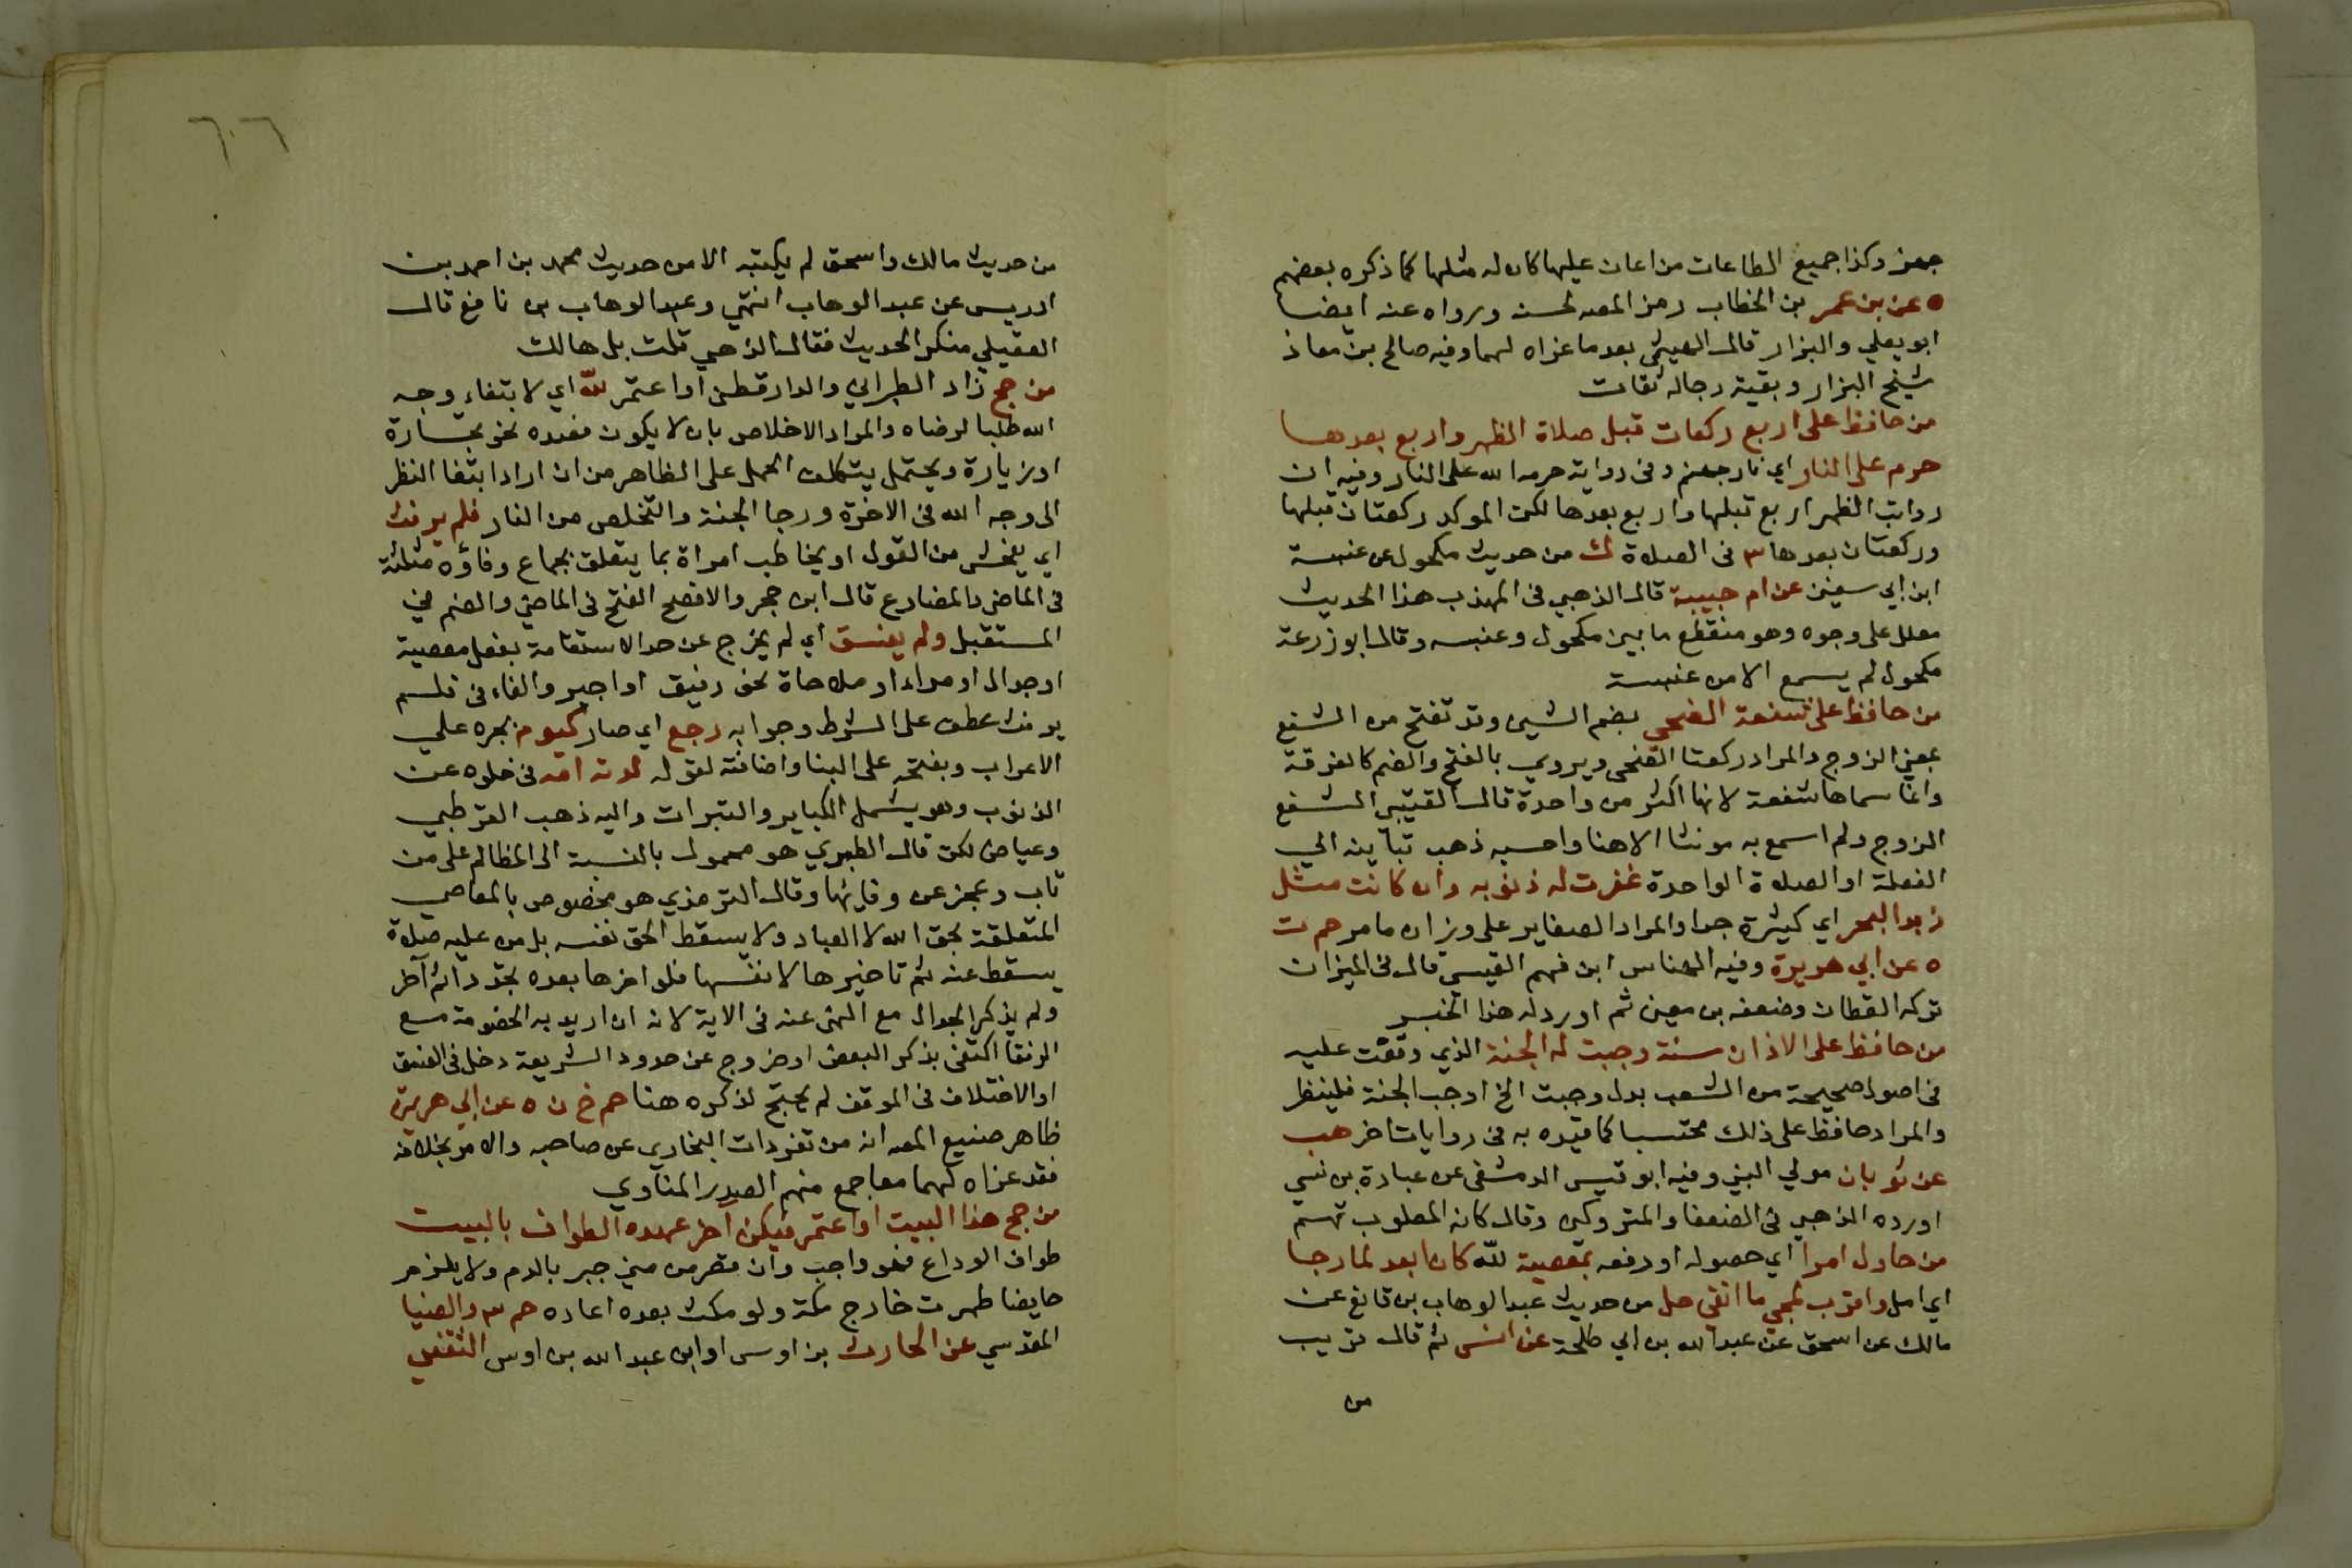 جهز وكذا جميع الطاعات من اعان عليها كان له مثلها كما ذكره بعضهم
ه عن بن عمر بن الخطاب رمز المصه لحسنه ورواه عنه ايضا
ابو يعلي والبزار قال الهيثمي بعد ما عزاه لهما وفيه صالح بن معاذ
شيخ البزار وبقية رجاله ثقات
من حافظ على اربع ركعات قبل صلاة الظهر واربع بعدها
حرم على النار اي نار جهنم وفي رواية حرمه الله على النار وفيه ان
رواتب الظهر اربع قبلها واربع بعدها لكن الموكد ركعتان قبلها
وركعتان بعدها ٣ في الصلاة ك من حديث مكحول عن عنبسة
ابن ابي سفين عن ام حبيبة قال الذهبي في المهذب هذا الحديث
معلل على وجوه وهو منقطع ما بين مكحول وعنبسه وقال ابو زرعة
مكحول لم يسمع الا من عنبسة
من حافظ على شفعة الضحي بضم الشين وقد تفتح من الشفع
بمعني الزوج والمراد ركعتا الضحى ويروي بالفتح والضم كالغرفة
وانما سماها شفعة لانها اكثر من واحدة قال القتيبي الشفع
الزوج ولم اسمع به مونثا الا هنا واحسبه ذهب بتانيثه الي
الفعلة او الصلاة الواحدة غفرت له ذنوبه وان كانت مثل
زبد البحر اي كثيرة جدا والمراد الصغاير على وزان ما مر حم ت
ه عن ابي هريرة وفيه النهاس ابن فهم القيسي قال في الميزان
تركه القطان وضعفه بن معين ثم اورد له هذا الخبر
من حافظ على الاذان سنة وجبت له الجنة الذي وقفت عليه
في اصول صحيحة من الشعب بدل وجبت الخ اوجب الجنة فلينظر
والمراد حافظ على ذلك محتسبا كما قيده به في روايات اخر هب
عن ثوبان مولي النبي وفيه ابو قيس الدمشقي عن عبادة بن نسي
اورده الذهبي في الضعفا والمتروكين وقال كانه المصلوب متهم
من حاول امرا اي حصوله او دفعه بمعصية لله كان ابعد لما رجا
اي امل واقرب لمجي ما اتقي حل من حديث عبد الوهاب بن نافع عن
مالك عن اسحق عن عبد الله بن ابي طلحة عن انس ثم قال غريب
من
٦٠٦
من حديث مالك واسحق لم يكتبه الا من حديث محمد بن احمد بن
ادريس عن عبد الوهاب انتهي وعبد الوهاب بن نافع قال
العقيلي منكر الحديث فقال الذهبي قلت بل هالك
من حج زاد الطبراني والدارقطني او اعتمر لله اي لابتغاء وجه
الله طلبا لرضاه والمراد الاخلاص بان لا يكون قصده نحو تجارة
او زيارة ويحتمل بتكلف الحمل على الظاهر من ان اراد ابتغا النظر
الى وجه الله في الاخرة ورجا الجنة والتخلص من النار فلم يرفث
اي يفحش من القول او يخاطب امراة بما يتعلق بجماع وفاؤه مثلثة
في الماضي والمضارع قال ابن حجر والافصح الفتح في الماضي والضم في
المستقبل ولم يفسق اي لم يخرج عن حد الاستقامة بفعل معصية
او جدال او مراء او ملاحاة نحو رفيق او اجير والفاء في فلم
يرفث عطف على الشرط وجوابه رجع اي صار كيوم بجره علي
الاعراب وبفتحه على البنا واضافته لقوله ولدته امه في خلوه عن
الذنوب وهو يشمل الكباير والتبعات واليه ذهب القرطبي
وعياض لكن قال الطبري هو محمول بالنسبة الى المظالم على من
تاب وعجز عن وفايها وقال الترمذي هو مخصوص بالمعاصي
المتعلقة بحق الله لا العباد ولا يسقط الحق نفسه بل من عليه صلاة
يسقط عنه اثم تاخيرها لا نفسها فلو اخرها بعده تجدد اثم آخر
ولم يذكر الجدال مع النهي عنه في الاية لانه ان اريد به الخصومة مع
الرفقا اكتفى بذكر البعض او خروج عن حدود الشريعة دخل في الفسق
او الاختلاف في الموقف لم يحتج لذكره هنا حم خ ن ه عن ابي هريرة
ظاهر صنيع المصه انه من تفردات البخاري عن صاحبه والامر بخلافه
فقد عزاه لهما معا جمع منهم الصدر المناوي
من حج هذا البيت او اعتمر فيكن اخر عهده الطواف بالبيت
طواف الوداع فهو واجب وان قصر من مني جبر بالدم ولا يلزم
حايضا طهرت خارج مكة ولو مكث بعده اعاده حم ٣ والضيا
المقدسي عن الحارث بن اوس او ابن عبد الله بن اوس الثقفي